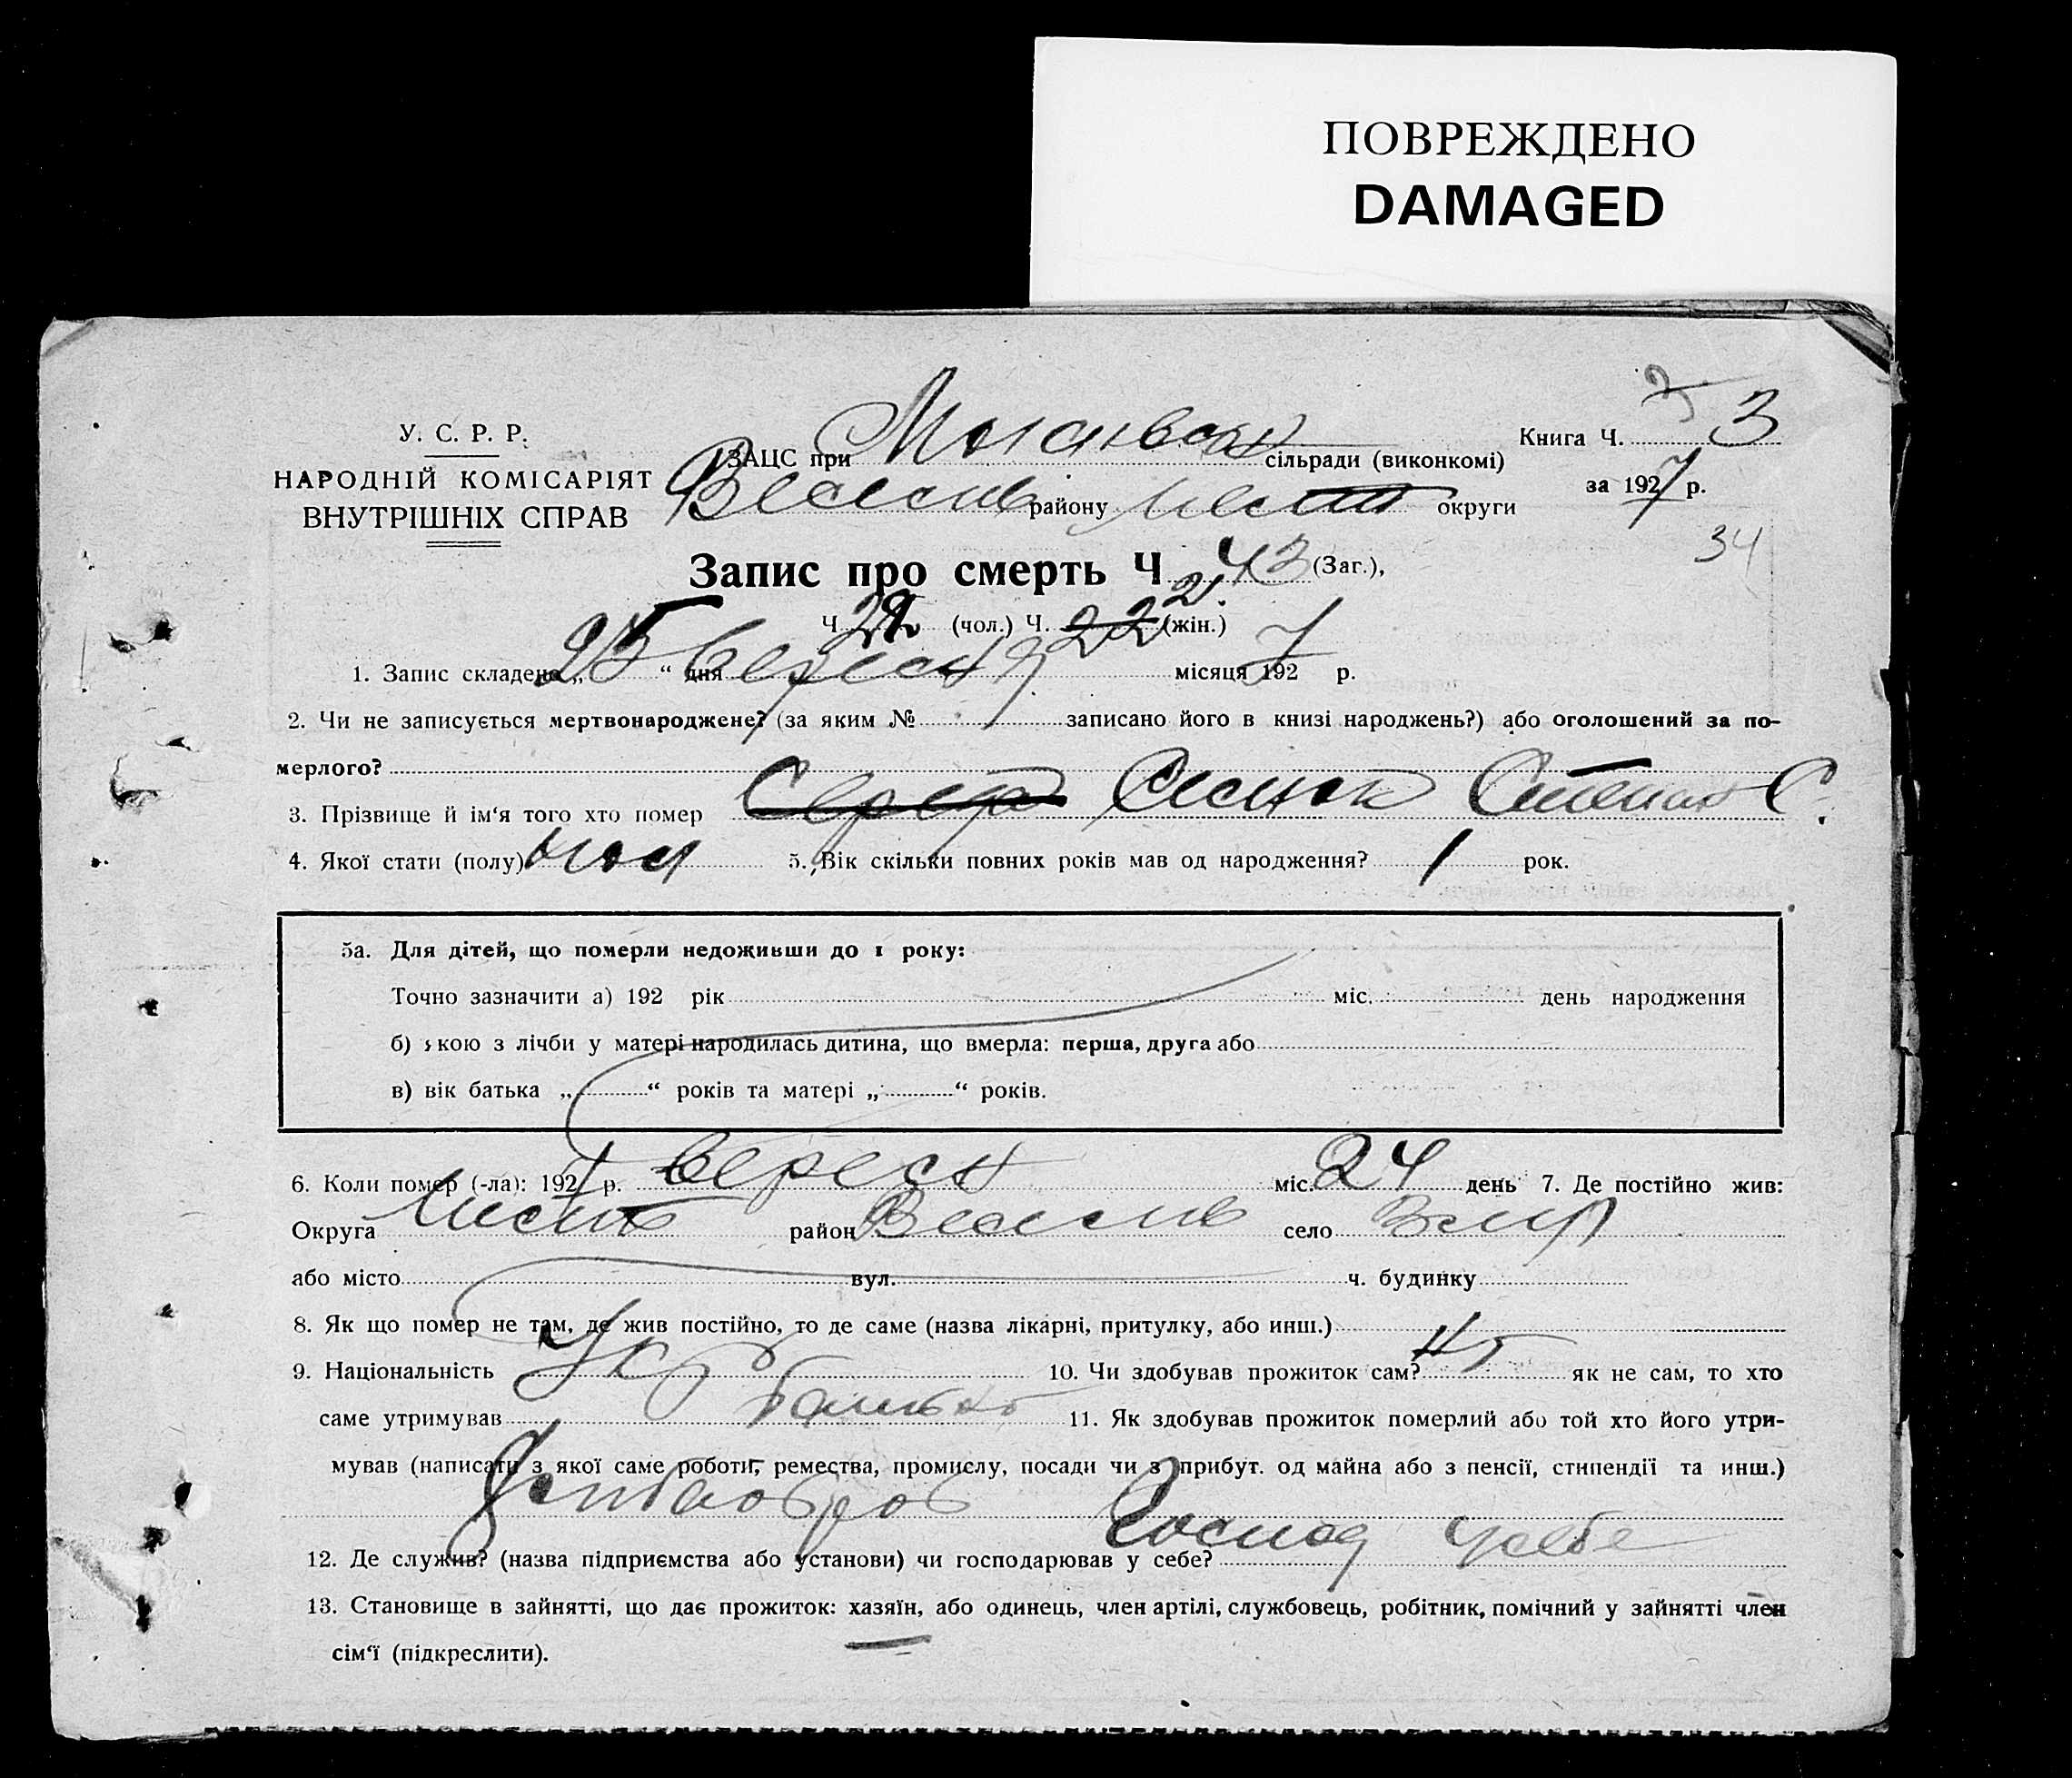 ПОВРЕЖДЕНО
DAMAGED
У. С. Р. Р.
НАРОДНІЙ КОМІСАРІЯТ
ВНУТРІШНІХ СПРАВ
ЗАЦС при сільради (виконкомі)
району округи
Книга Ч. 3
за 1927 р.
34
Запис про смерть Ч 43 (Заг.),
Ч 22 (чол.) Ч. 22 21 (жін.)
1. Запис складено „25 “ дня вересня місяця 1927 р.
2. Чи не записується мертвонароджене? (за яким № записано його в книзі народжень?) або оголошений за по-
мерлого?
3. Прізвище й ім‘я того хто помер Степан С.
4. Якої стати (полу) чол 5. Вік скільки повних років мав од народження? 1 рок.
5а. Для дітей, що померли недоживши до 1 року:
Точно зазначити а) 192 рік міс. день народження
б) якою з лічби у матері народилась дитина, що вмерла: перша, друга або
в) вік батька „ “ років та матері „ “ років.
6. Коли помер (-ла): 1927 р. вересн міс. 24 день 7. Де постійно жив:
Округа район село
або місто вул. ч. будинку
8. Як що помер не там, де жив постійно, то де саме (назва лікарні, притулку, або инш.)
9. Національність Укр 10. Чи здобував прожиток сам? Ні як не сам, то хто
саме утримував батько 11. Як здобував прожиток померлий або той хто його утри-
мував (написати з якої саме роботи, ремества, промислу, посади чи з прибут. од майна або з пенсії, стипендії та инш.)
12. Де служив? (назва підприємства або установи) чи господарював у себе? Господ у себе
13. Становище в зайнятті, що дає прожиток: хазяїн, або одинець, член артілі, службовець, робітник, помічний у зайнятті член
сім‘ї (підкреслити).